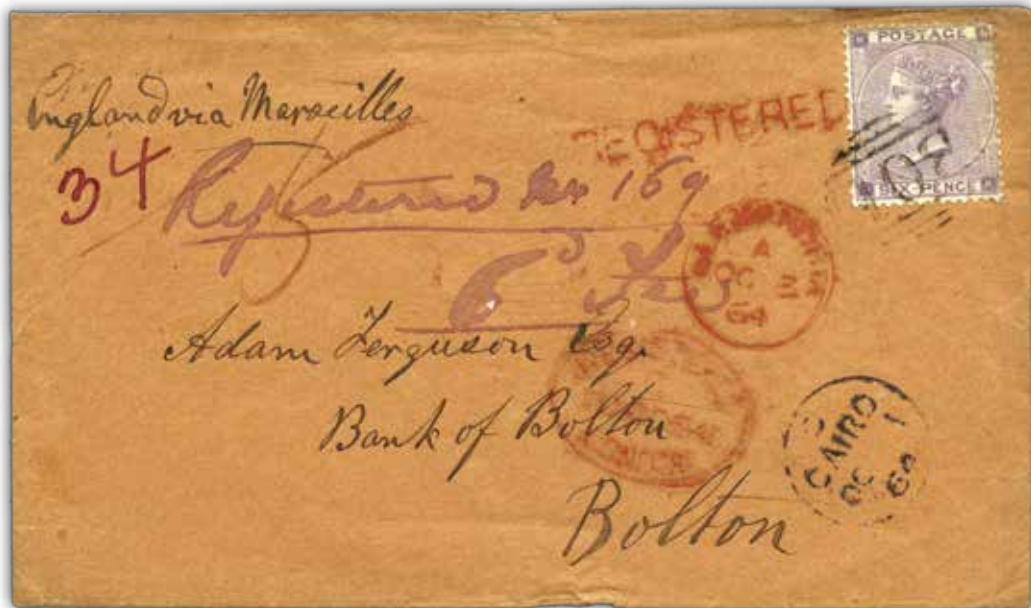 POSTAGE
SIX PENCE
England via Marseilles
REGISTERED
34
Registered No 169
6
A
OC 2
64
Adam Ferguson Esq.
Bank of Bolton
Bolton
CAIRO
OC 1